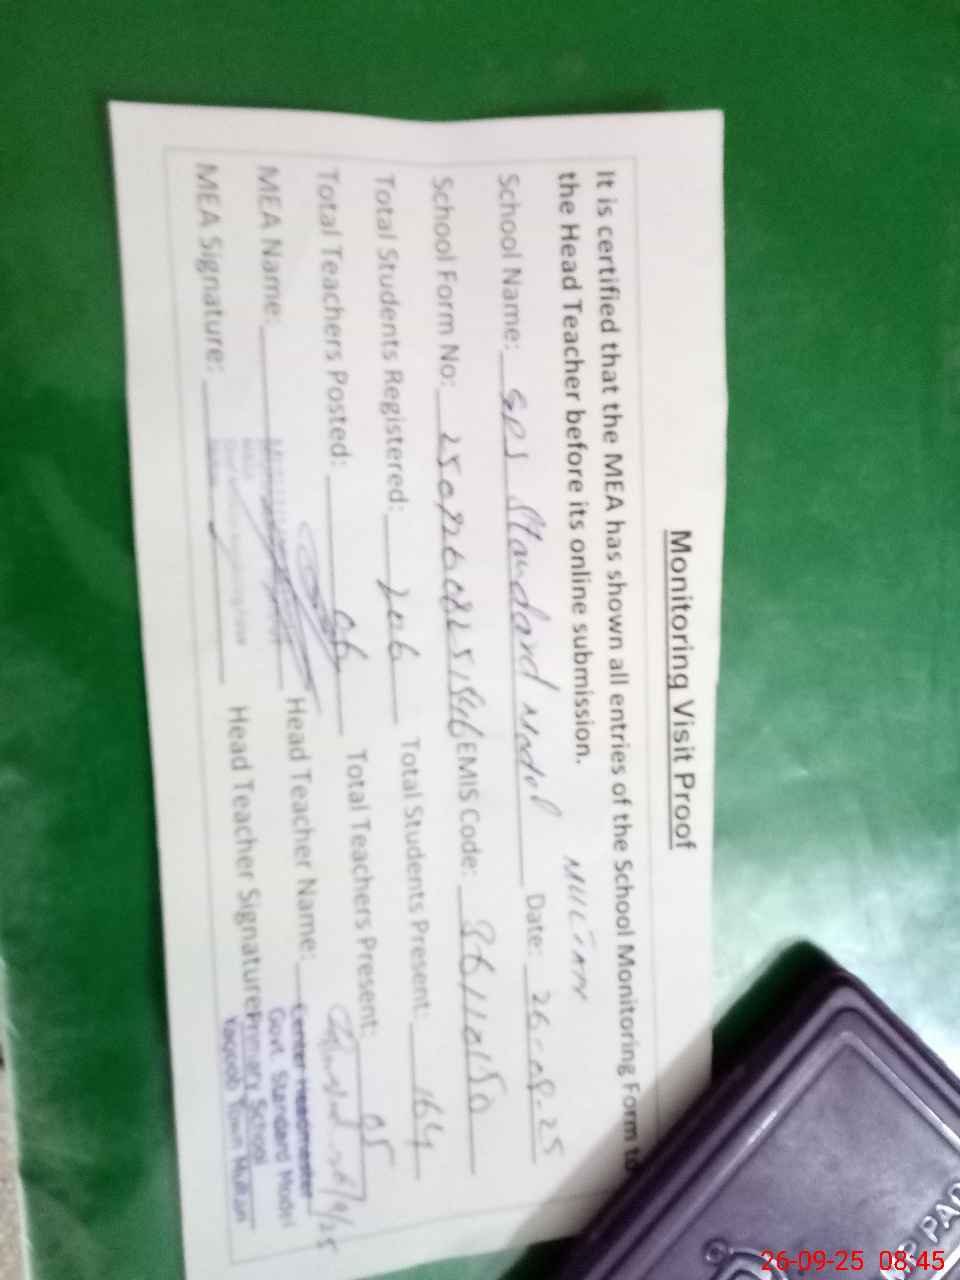 Monitoring Visit Proof
It is certified that the MEA has shown all entries of the School Monitoring Form to
the Head Teacher before its online submission.
MULTAN
School Name: GPS Standard Model Date: 26-08-25
School Form No: EMIS Code: 36110150
Total Students Registered: 206 Total Students Present: 164
Total Teachers Posted: 06 Total Teachers Present: 05
MEA Name: Head Teacher Name:
MEA Signature: Head Teacher Signature:
Center Headmaster
Govt. Standard Model
Primary School
Yaqoob Town Multan
P PAD
26-09-25 08:45